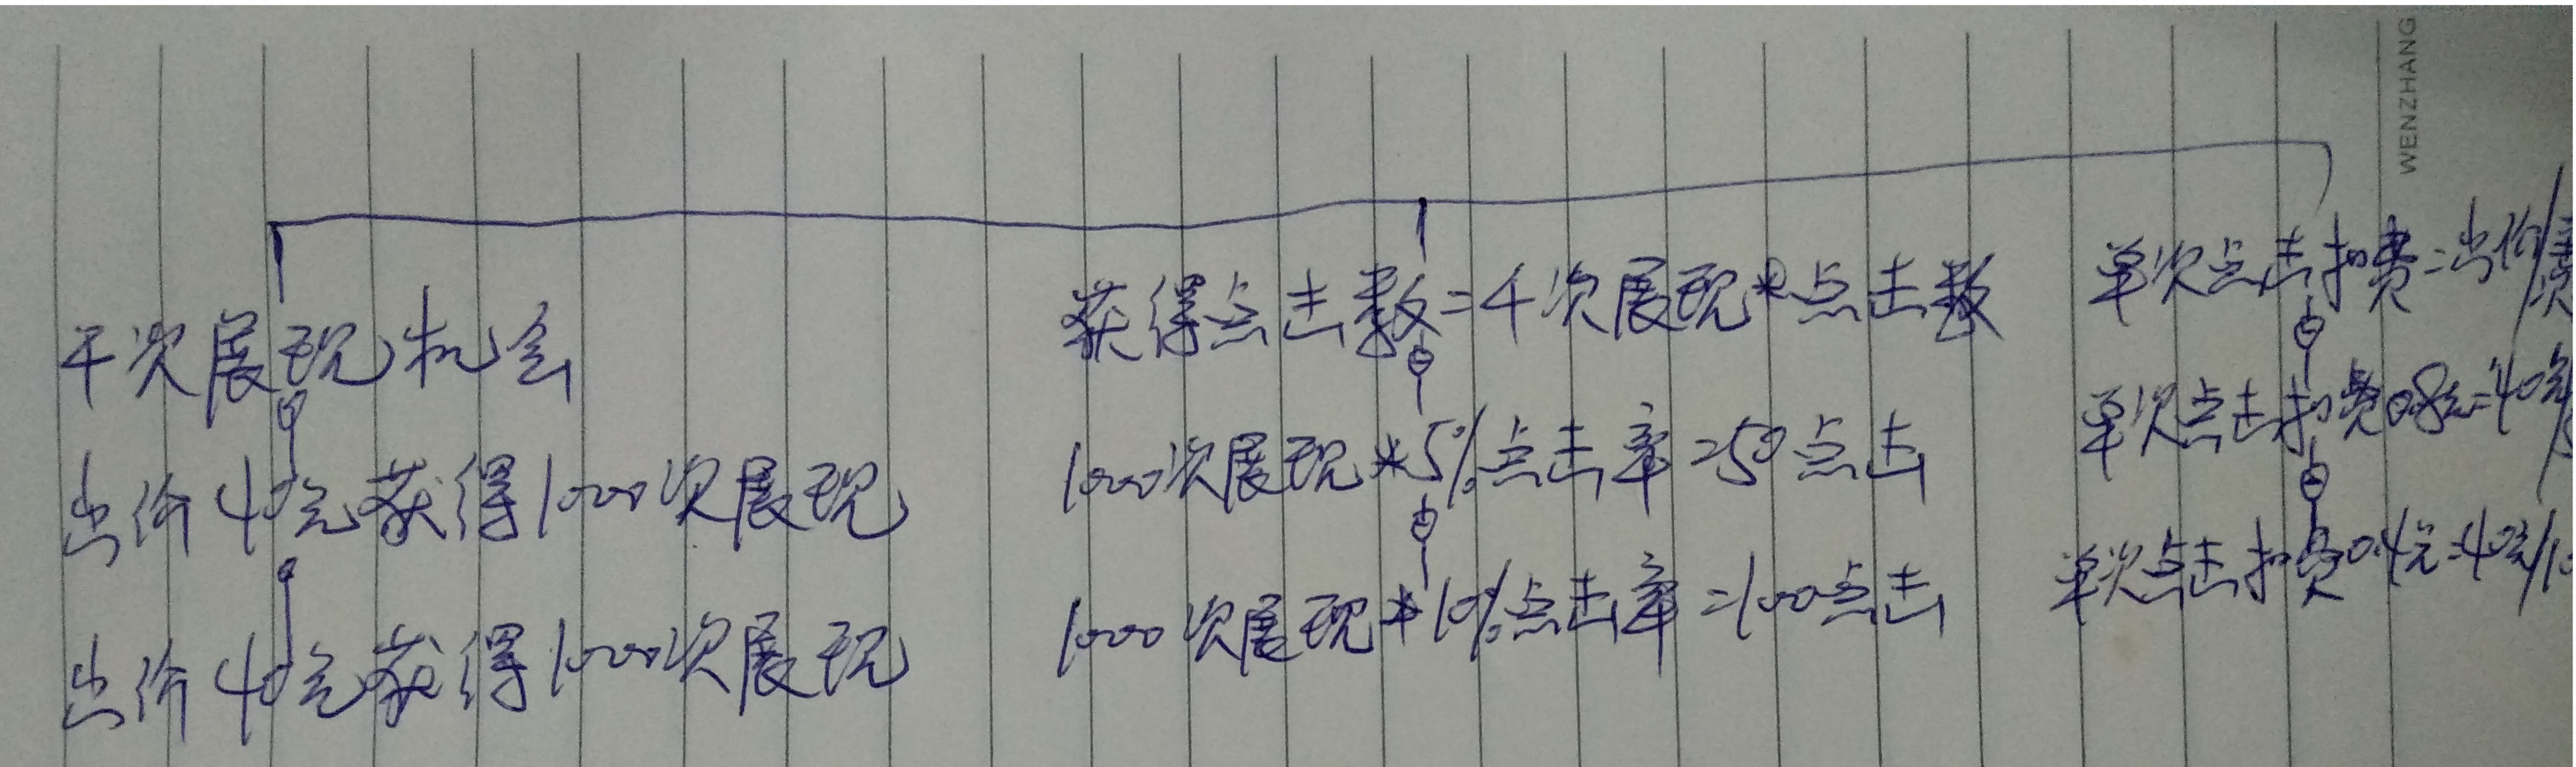 千次展现机会
出价40元获得1000次展现
出价40元获得1000次展现
获得点击数=千次展现*点击数
1000次展现*5%点击率=50点击
1000次展现*10%点击率=100点击
单次点击扣费=出价/
单次点击扣费0.8元=40元/
单次点击扣费0.4元=40元/1
WENZHANG